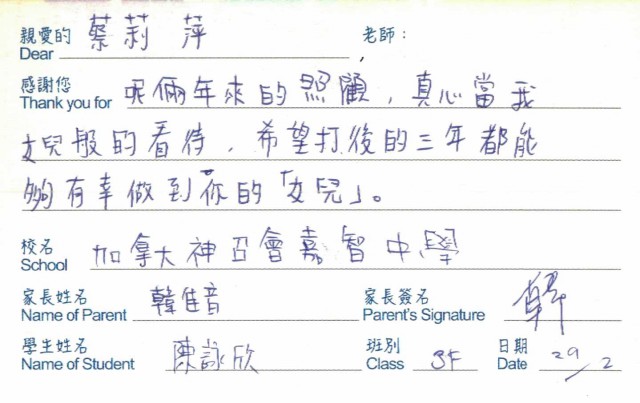 親愛的 蔡莉萍 老師：
Dear ,
感謝您 呢倆年來的照顧，真心當我
Thank you for
女兒般的看待，希望打後的三年都能
夠有幸做到你的「女兒」。
校名 加拿大神召會嘉智中學
School
家長姓名 韓佳音 家長簽名 韓
Name of Parent Parent's Signature
學生姓名 陳詠欣 班別 3F 日期 29/2
Name of Student Class Date